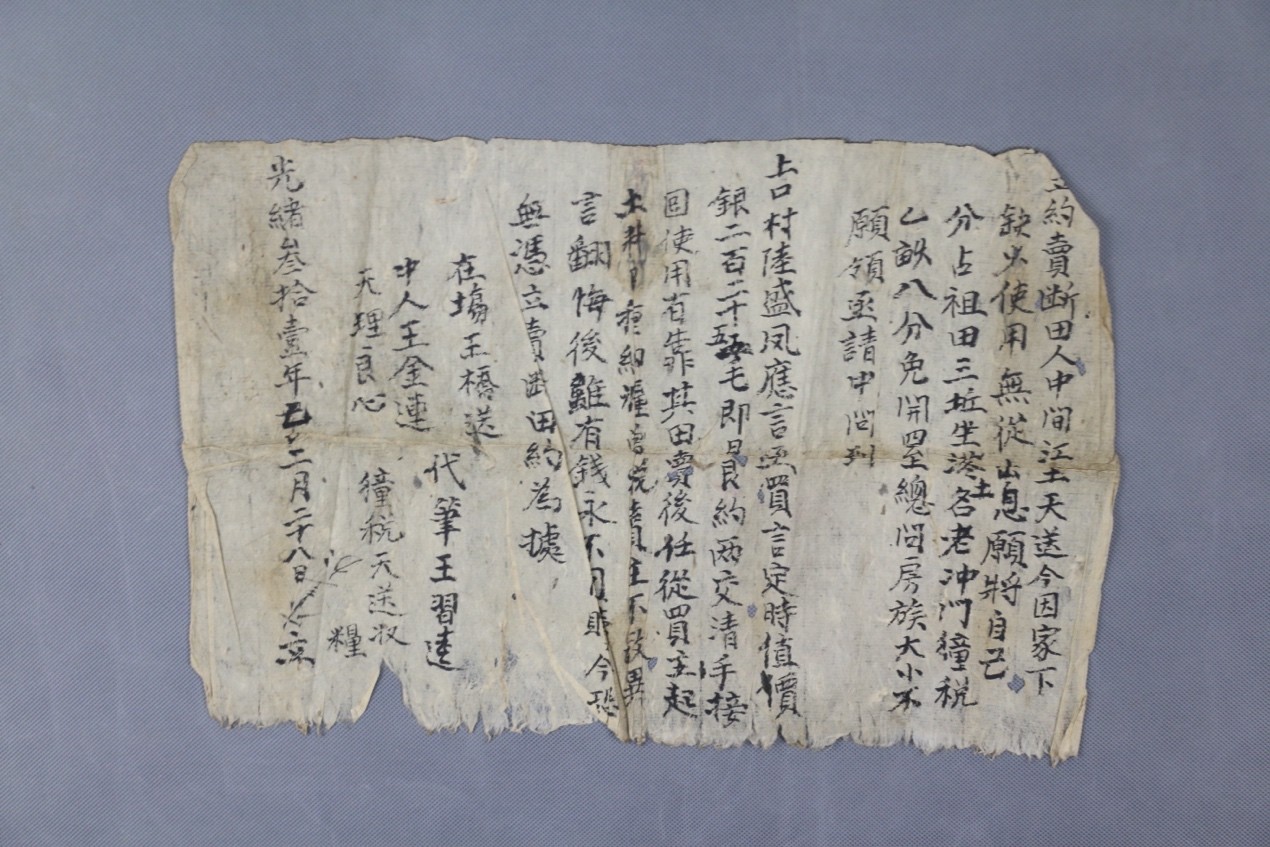 立約賣斷田人中間江王天送今因家下
缺少使用無從出息願將自己
分占祖田三坵坐港土名老冲门獞税
乙畝八分免開四至總问房族大小不
願領丞請中问到
上口村陸盛凤應言承買言定時值價
銀二百二十五毛即日艮約兩交清手接
回使用有靠其田賣後任從買主起
土耕種納糧當税賣主不敢異
言翻悔後雖有錢永不用贖今恐
無憑立賣断田約為據
在塲王橋送
代筆王習逵
中人王金連
天理良心
獞税天送收糧
光緒叁拾壹年乙巳二月二十八日立㡷